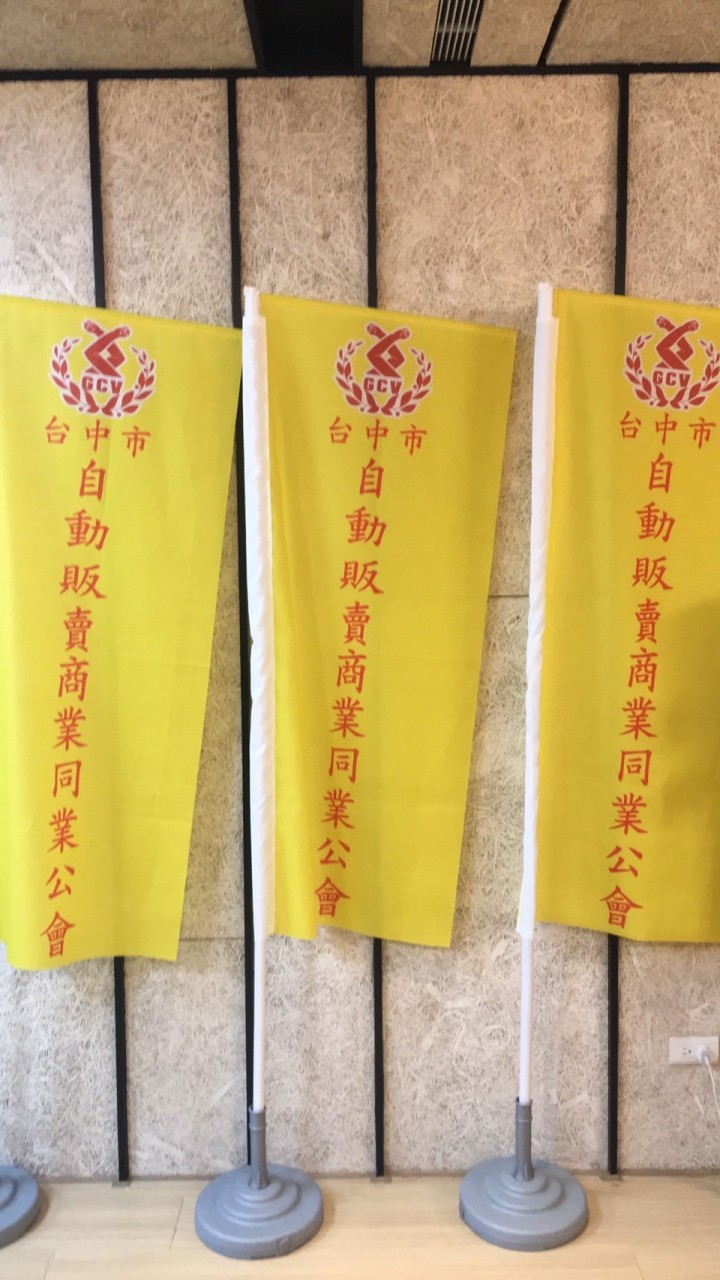 GCV
台中市
自動販賣商業同業公會
GCV
台中市
自動販賣商業同業公會
GCV
台中市
自動販賣商業同業公會